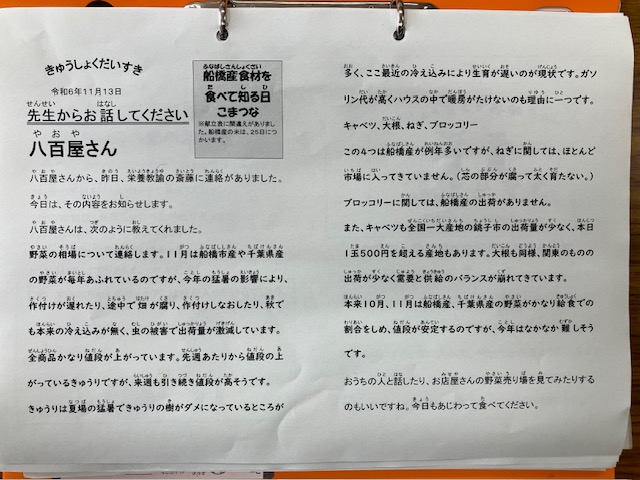 きゅうしょくだいすき
令和6年11月13日
先生からお話してください
八百屋さん
船橋産食材を
食べて知る日
こまつな
※献立表に間違えがありました。船橋産の米は、25日につかいます。
八百屋さんから、昨日、栄養教諭の斎藤に連絡がありました。
今日は、その内容をお知らせします。
八百屋さんは、次のように教えてくれました。
野菜の相場について連絡します。11月は船橋市産や千葉県産
の野菜が毎年あふれているのですが、今年の猛暑の影響により、
作付けが遅れたり、途中で畑が腐り、作付けしなおしたり、秋で
も本来の冷え込みが無く、虫の被害で出荷量が激減しています。
全商品かなり値段が上がっています。先週あたりから値段の上
がっているきゅうりですが、来週も引き続き値段が高そうです。
きゅうりは夏場の猛暑できゅうりの樹がダメになっているところが
多く、ここ最近の冷え込みにより生育が遅いのが現状です。ガソ
リン代が高くハウスの中で暖房がたけないのも理由に一つです。
キャベツ、大根、ねぎ、ブロッコリー
この4つは船橋産が例年多いですが、ねぎに関しては、ほとんど
市場に入ってきていません。(芯の部分が腐って太く育たない。)
ブロッコリーに関しては、船橋産の出荷がありません。
また、キャベツも全国一大産地の銚子市の出荷量が少なく、本日
1玉500円を超える産地もあります。大根も同様、関東のものの
出荷が少なく需要と供給のバランスが崩れてきています。
本来10月、11月は船橋産、千葉県産の野菜がかなり給食での
割合をしめ、値段が安定するのですが、今年はなかなか難しそう
です。
おうちの人と話したり、お店屋さんの野菜売り場を見てみたりする
のもいいですね。今日もあじわって食べてください。